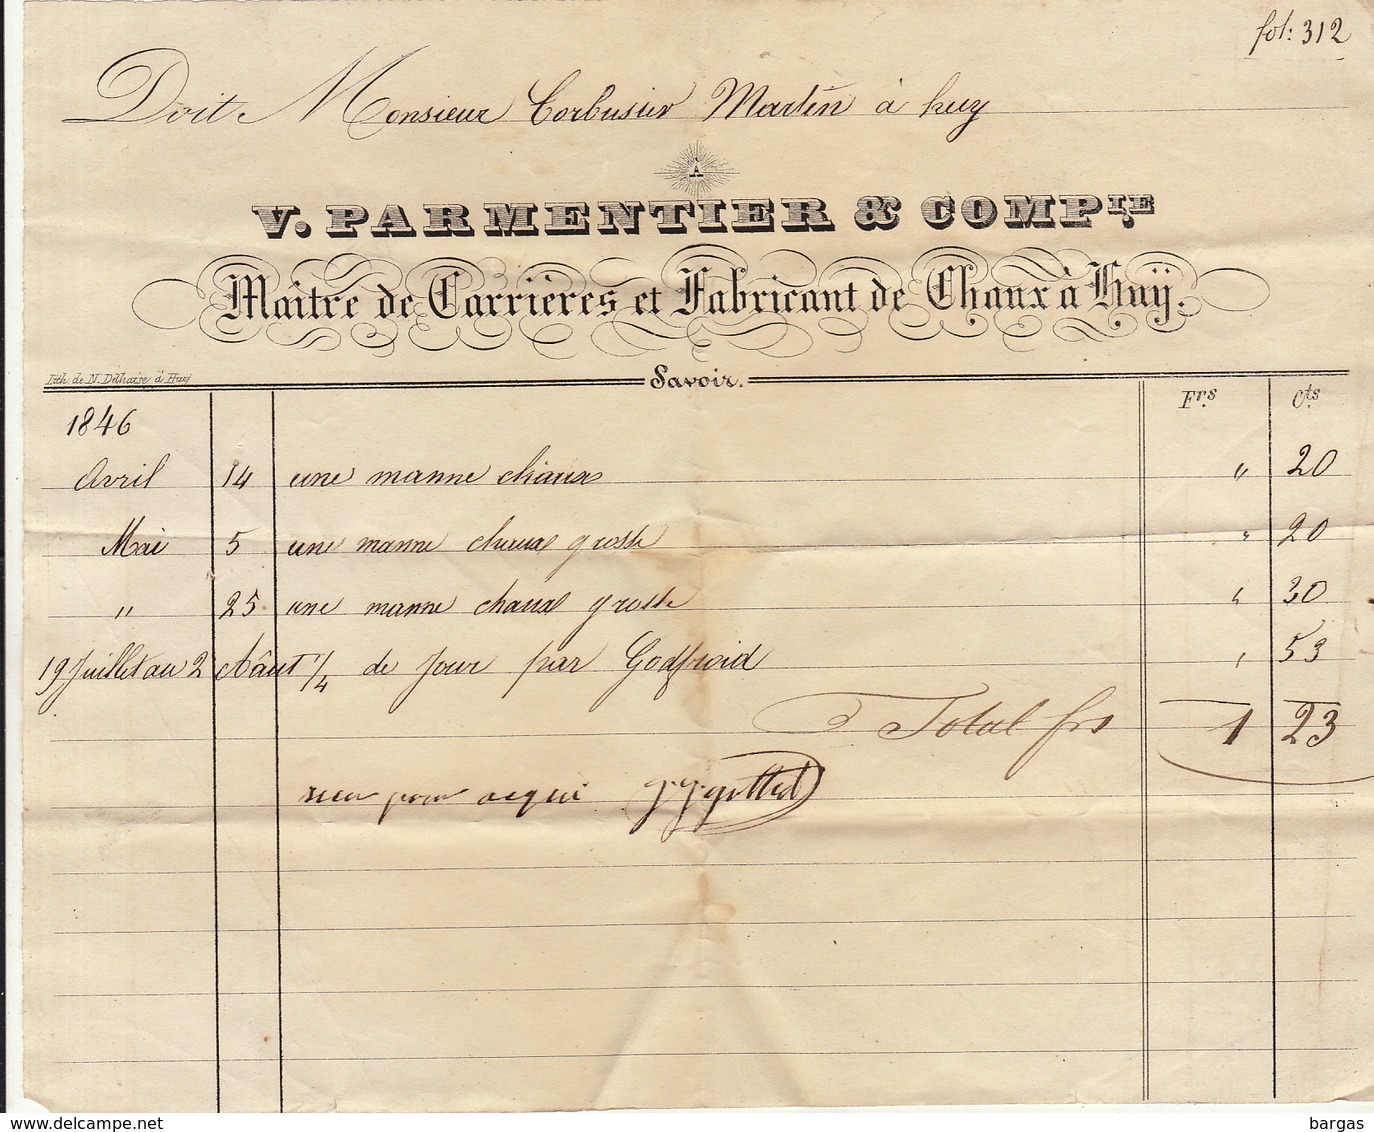 fol: 312
Doit Monsieur Corbusier Martin à huy
À
V. PARMENTIER & COMPIE.
Maître de Carrières et Fabricant de Chaux à Huÿ.
Lith. de N. Delhaise à Huy
Savoir.
Frs Cts
1846
Avril 14 une manne chaux " 20
Mai 5 une manne chaux grosse " 20
" 25 une manne chaux grosse " 30
19 Juillet au 2 Aâut 1/4 de Jour par Godfroid " 53
Total frs 1 23
recu pour acqui
www.delcampe.net
bargas